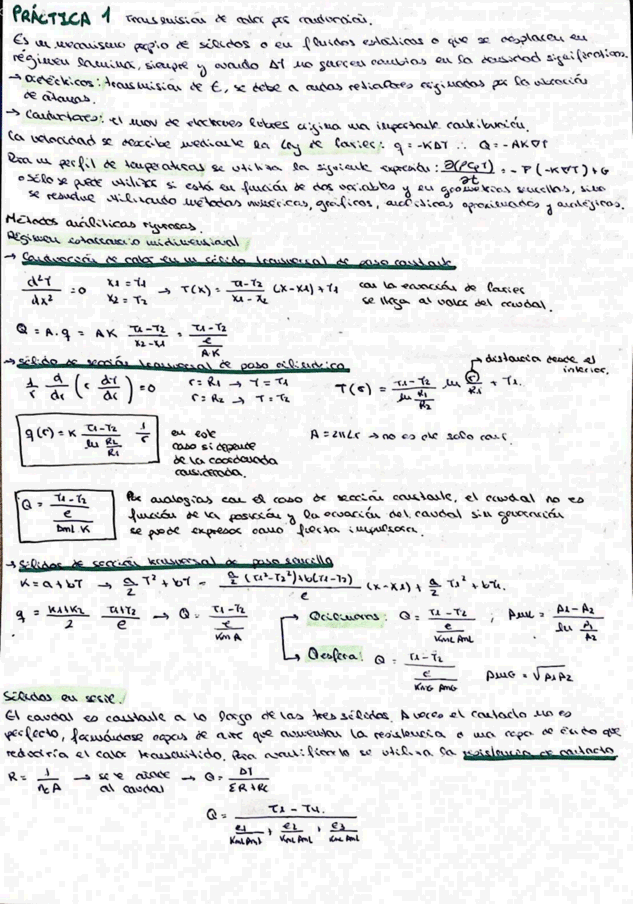 PRÁCTICA 1 Transmisión de calor por conducción.
Es un mecanismo propio de sólidos o en fluidos estáticos o que se desplacen en
régimen laminar, siempre y cuando ΔT no generen cambios en la densidad significativos.
→ dieléctricos: transmisión de E, se debe a ondas reticulares originadas por la vibración
de átomos.
→ Conductores: el mov de electrones libres origina una importante contribución.
La velocidad se describe mediante la Ley de Fourier: q = -K∆T ∴ Q = -AK∇T
Para un perfil de temperaturas se utiliza la siguiente expresión: ∂(ρCpT)/∂t = -∇(-K∇T)+G
o sólo se puede utilizar si está en función de dos variables y en geometrías sencillas, sino
se resuelve utilizando métodos numéricos, gráficos, analíticos aproximados y analógicos.
Métodos analíticos rigurosos.
Régimen estacionario unidimensional
→ Conducción de calor en un sólido transversal de paso constante
d²T/dx² = 0 x1 = T1 x2 = T2 → T(x) = T1-T2/x1-x2 (x-x1)+T1 con la ecuación de Fourier
se llega al valor del caudal.
Q = A·q = AK T1-T2/x2-x1 = T1-T2/(e/AK)
→ sólido de sección transversal de paso cilíndrica
→ distancia desde el
interior.
1/r d/dr (r dT/dr) = 0 r = R1 → T = T1 r = R2 → T = T2 T(r) = T1-T2/(ln R1/R2) ln r/R1 + T1.
q(r) = K T1-T2/(ln R2/R1) 1/r en este A = 2πLr → no es de solo
caso si depende
de la coordenada
considerada.
Q = T1-T2/(e/Dml K) Por analogías con el caso de sección constante, el caudal no es
función de la posición y la ecuación del caudal sin generación
se puede expresar como fuerza impulsora.
→ Sólidos de sección transversal de paso sencillo
K = a+bT → a/2 T² + bT = (a/2 (T1²-T2²)+b(T1-T2))/e (x-x1) + a/2 T1² + bT1.
q = K1+K2/2 T1+T2/e → Q = T1-T2/(e/Km A)
→ Qcilindros: Q = T1-T2/(e/KmL AmL) ; AmL = A1-A2/(ln A1/A2)
→ Qesfera: Q = T1-T2/(e/KmG AmG) AmG = √A1A2
Sólidos en serie.
El caudal es constante a lo largo de los tres sólidos. A veces el contacto no es
perfecto, formándose capas de aire que aumentan la resistencia o una capa de óxido que
reduciría el calor transmitido. Para cuantificarlo se utiliza la resistencia de contacto
R = 1/hcA → se le añade al caudal → Q = DT/(ΣR+Rc)
Q = T1 - T4./(e1/KmL AmL + e2/KmL AmL + e3/KmL AmL)